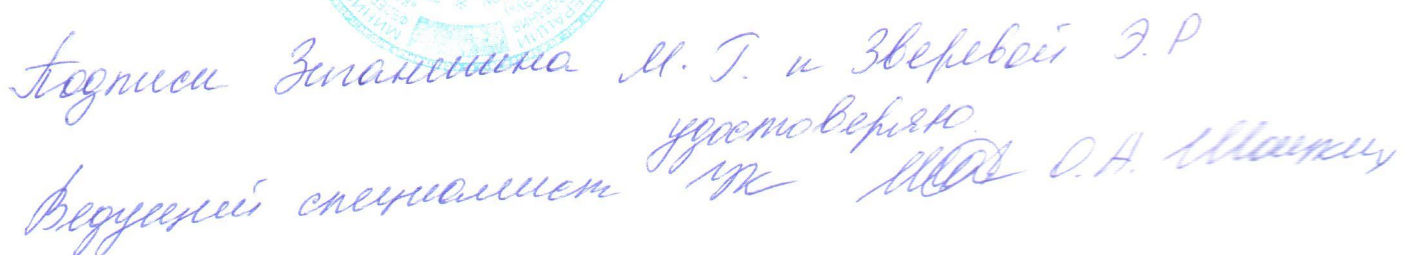 Подписи Зиганшина М. Г. и Зверевой Э. Р
удостоверяю
Ведущий специалист УК О. А.